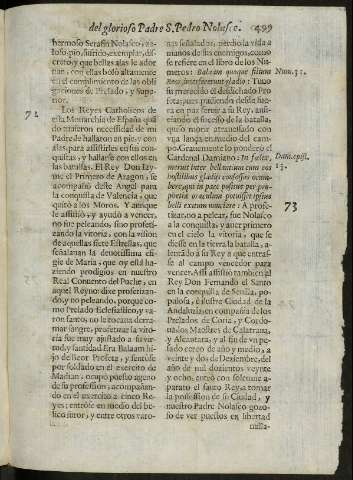 del glorioso Padre S. Pedro Nolasco. 499
hermoso Serafin Nolasco, ze-
loso, pio, sufrido, exemplar, dis-
creto, y que bellas alas le ador
nan, con ellas boló altamente
en el cumplimiento de las obli
gaciones de Prelado, y Supe-
rior.
72
Los Reyes Catholicos de
esta Monarchia de España quã
do tuuieron necessidad de mi
Padre de hallaron en pie, y con
alas, para assistirles en sus con
quistas, y hallarse con ellos en
las batallas. El Rey Don Iay-
me el Primero de Aragon, le
acompañó deste Angel para
la conquista de Valencia, que
quitó a los Moros. Y aunque
le assistió, y ayudó a vencer,
no fue peleando, sino profeti-
zando la vitoria, con la vision
de aquellas siete Estrellas, que
señalaron la deuotissima efi-
gie de Maria, que oy está ha-
ziendo prodigios en nuestro
Real Conuento del Puche, en
aquel Reyno: dixe profetizan-
do, y no peleando, porque co-
mo Prelado Eclesiastico, y va-
ron santo, no le tocaua derra-
mar sangre, profetizar la vito-
ria fue muy ajustado a su vir-
tud, y santidad. Era Balaam hi-
jo de Beor Profeta, y sentóse
por soldado en el exercito de
Madian, ocupò puesto ageno
de su profession, acompañan-
do en el exercito a cinco Re-
yes; entróse en medio del be-
lico furor, y entre otros varo-
nes señalados, perdio la vida a
manos de sus enemigos, como
se refiere en el libro de los Nu-
meros: Balaam quoque filium Num. 31.
Beor interfecerunt gladio: Tuuo
su merecido el desdichado Pro
feta, pues pudiendo desde fue-
ra en paz seruir a su Rey, auis-
sando el sucesso de la batalla,
quiso morir atrauessado con
vna lança en medio del cam-
po. Gratamente lo ponderò el
Cardenal Damiano: In felix, Dam. epist.
meruit inter bellantium cum eos
hostilibus gladijs confossus occum-
bere, qui in pace positus per pro-
phetiæ oraculum potuisset ipsius
belli exitum nunciare: A profe-
73
tizar, no a pelear, fue Nolasco
a la conquista, y ante primero
en el cielo la vitoria, que le
diesse en la tierra la batalla, a-
lentado a su Rey a que entras-
se al campo vencedor para
vencer. Assi assistió tambien al
Rey Don Fernando el Santo
en la conquista de Seuilla, po-
pulosa, è ilustre Ciudad de la
Andaluzia en compañia de los
Prelados de Coria, y Cordo-
ua, dos Maestres de Calatraua,
y Alcantara, y al fin de vn pe-
sado cerco de año y medio, a
veinte y dos de Diziembre, del
año de mil dozientos veynte
y ocho, entró con solemne a-
parato el santo Rey a tomar
la possession de su Ciudad, y
nuestro Padre Nolasco gozo-
so de ver puestos en libertad